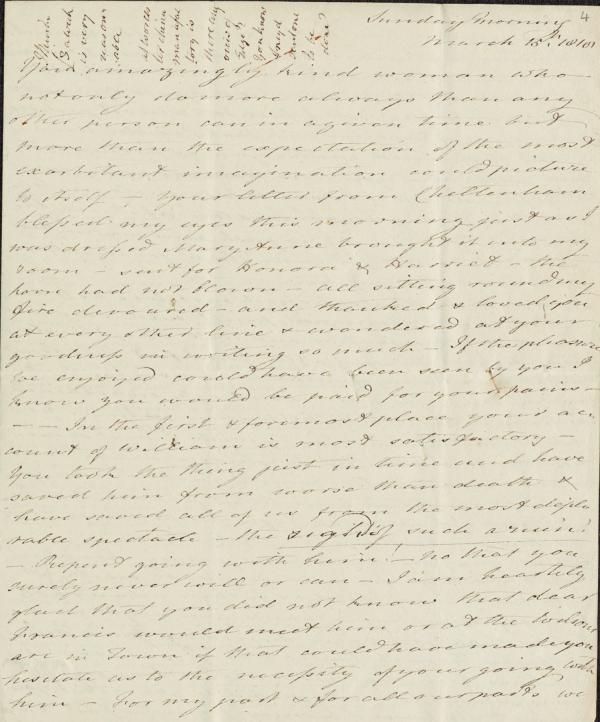 4
Sunday Morning
March 15th. 1818
You amazingly kind woman who
not only do more always than any
other person can in a given time but
more than the expectation of the most
exorbitant imagination could picture
to itself – your letter from Cheltenham
blessed my eyes this morning just as I
was dressed Mary Anne brought it into my
room – sent for Honora & Harriet – the
horn had not blown – all sitting round my
fire devoured – and thanked & loved you
at every other line & wondered at your
goodness in writing so much – If the pleasure
we enjoyed could have been seen by you I
know you would be paid for your pains –
– – In the first & foremost place your ac
count of William is most satisfactory –
You took the thing just in time and have
saved him from worse than death &
have saved all of us from the most deplo
rable spectacle – the sight of such a ruin!
– Repent going with him! – no that you
surely never will or can – I am heartily
glad that you did not know that dear
Francis would meet him or at the
are in Town if that could have made you
hesitate as to the necessity of your going with
him – For my part & for all our parts we
is very
reason
able
at
for him
manufac
tory is
there any
views of
Size of
you know
to be
done?